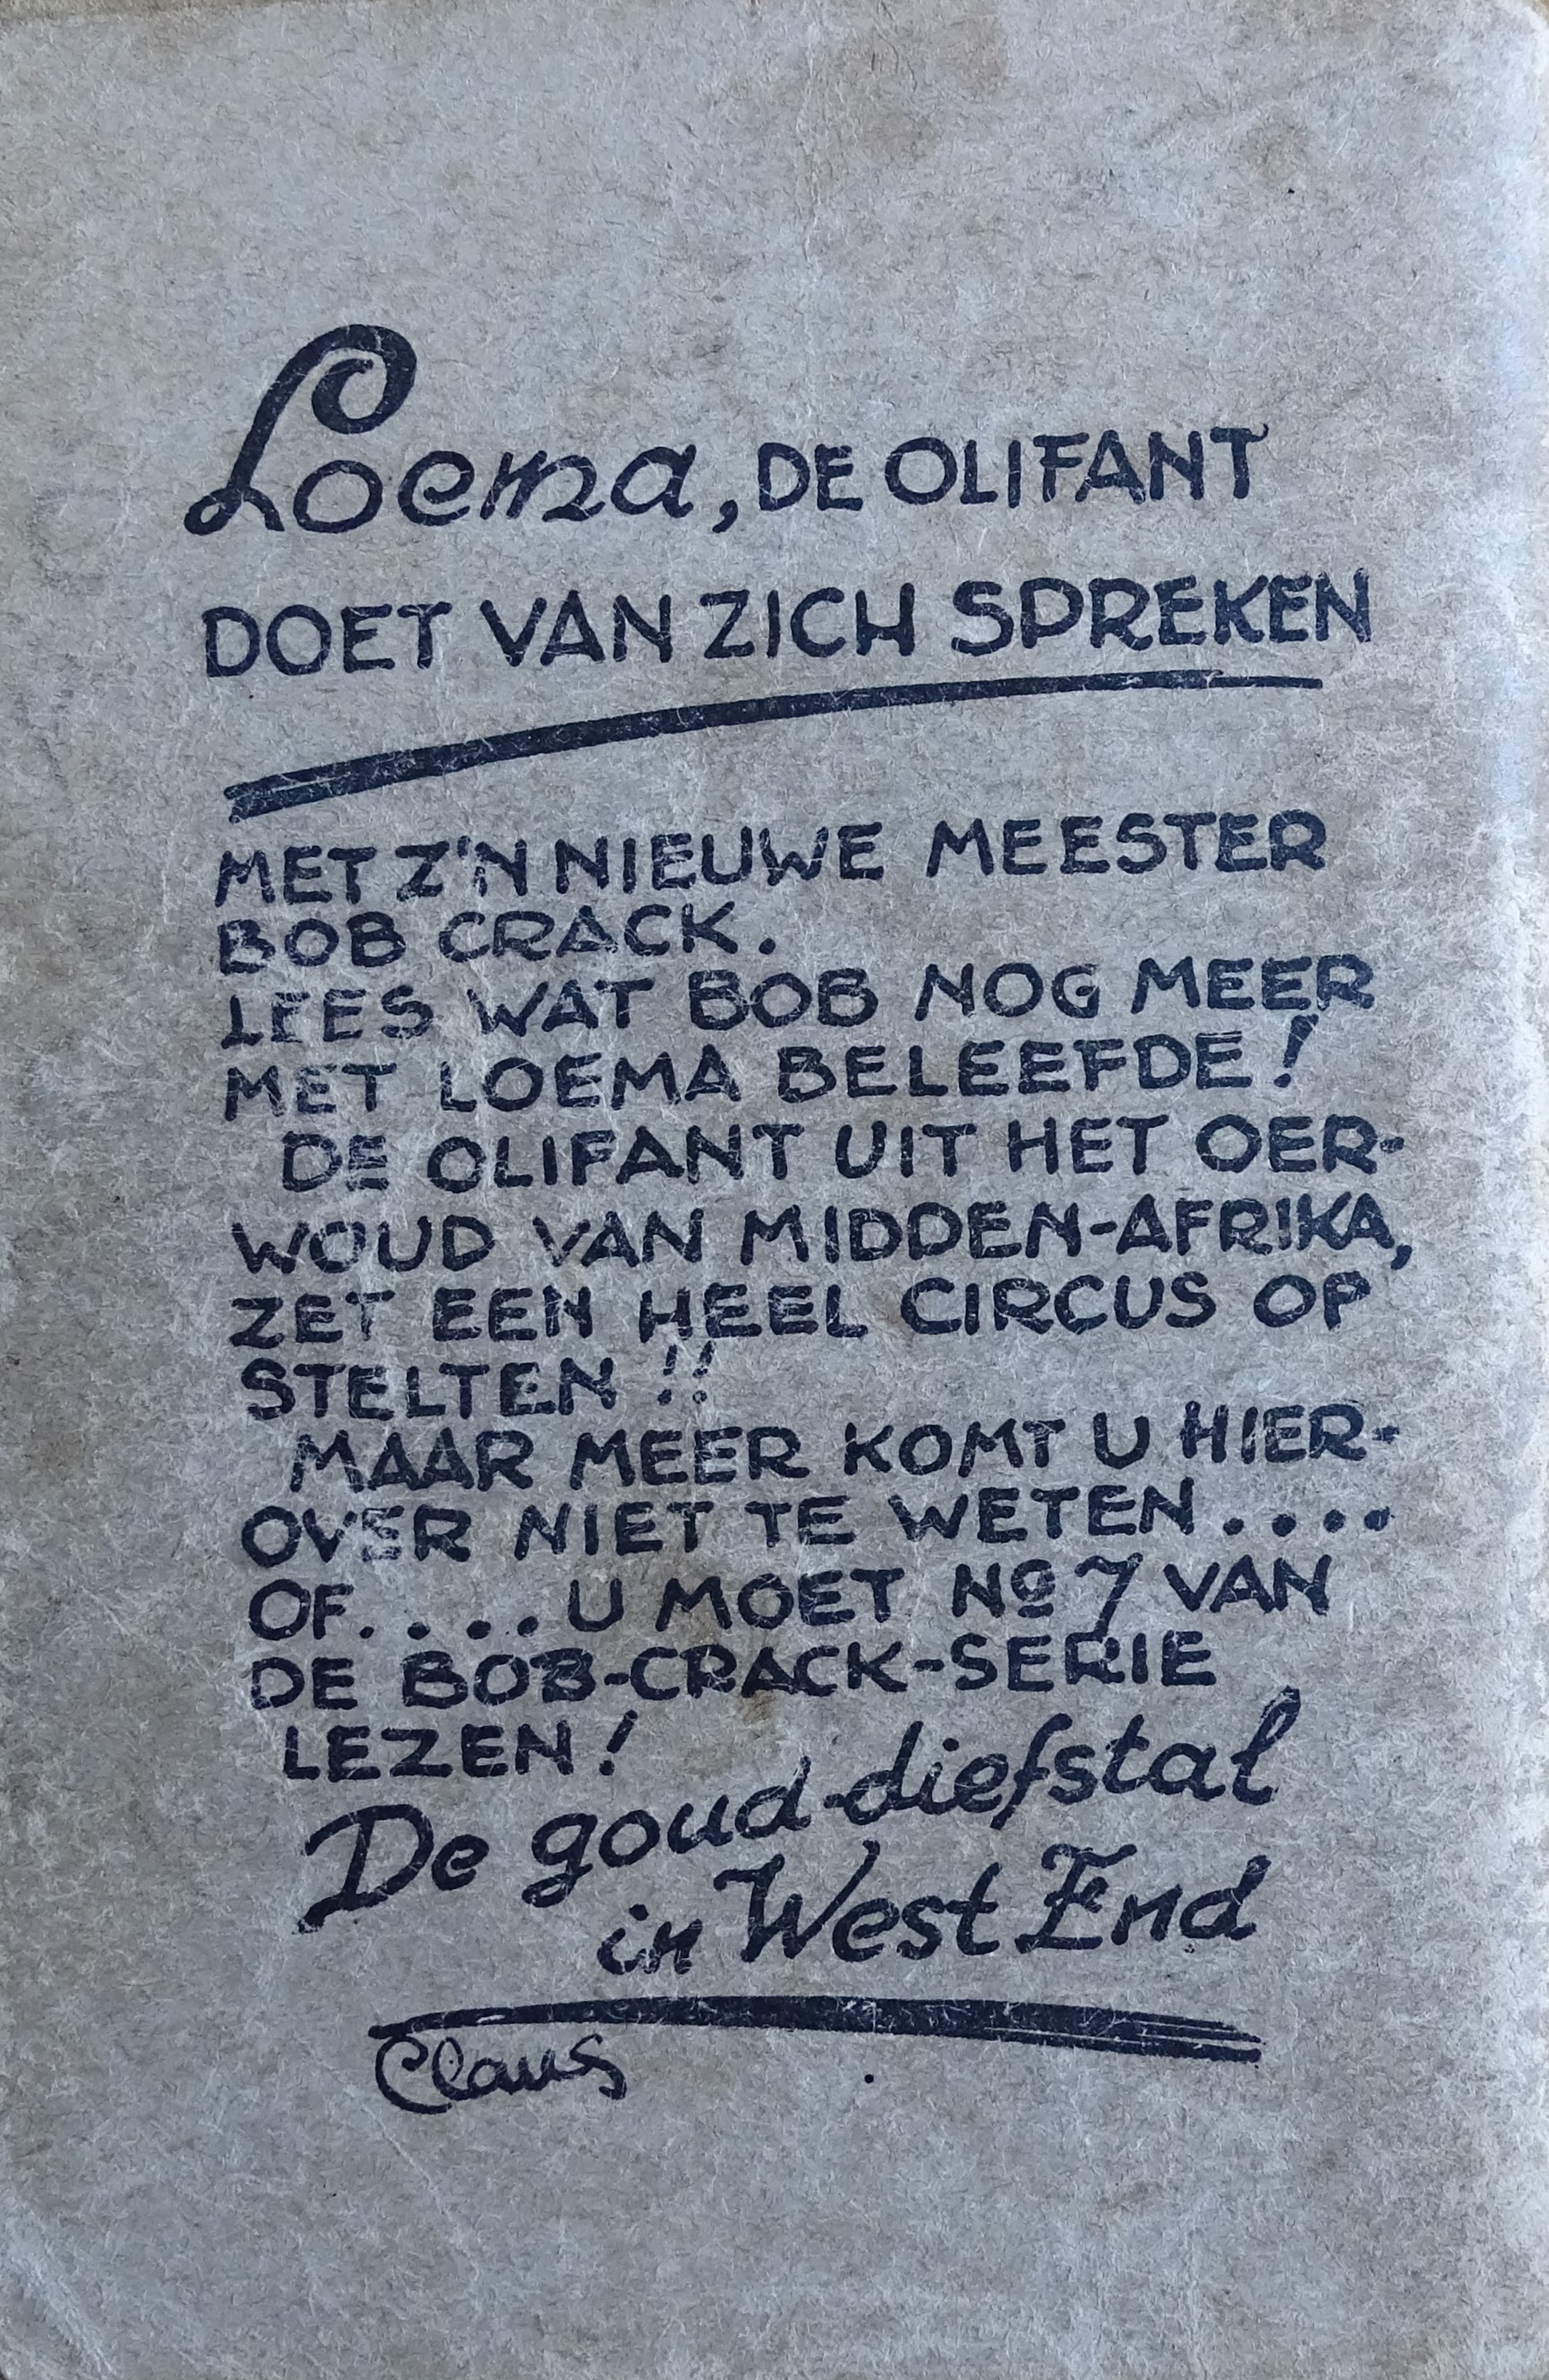 Loema, DE OLIFANT
DOET VAN ZICH SPREKEN
MET Z'N NIEUWE MEESTER
BOB CRACK.
LEES WAT BOB NOG MEER
MET LOEMA BELEEFDE!
DE OLIFANT UIT HET OER-
WOUD VAN MIDDEN-AFRIKA,
ZET EEN HEEL CIRCUS OP
STELTEN!!
MAAR MEER KOMT U HIER-
OVER NIET TE WETEN....
OF.....U MOET No 7 VAN
DE BOB-CRACK-SERIE
LEZEN!
De goud-diefstal
in West End
Claus